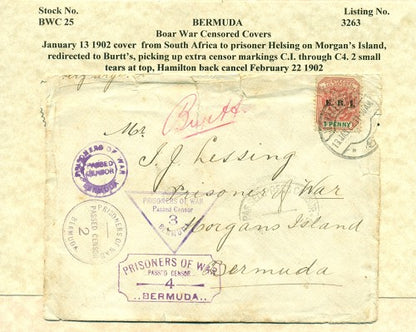 Stock No. BERMUDA Listing No.
BWC 25 Boar War Censored Covers 3263
January 13 1902 cover from South Africa to prisoner Helsing on Morgan's Island,
redirected to Burtt's, picking up extra censor markings C.I. through C4. 2 small
tears at top, Hamilton back cancel February 22 1902
Burtt's
E. R. I.
1 PENNY
Mr
S. J. Lessing
Prisoner of War
Morgans Island
Bermuda
PRISONERS OF WAR
PASSED
CENSOR
BERMUDA
PRISONERS OF WAR
PASSED CENSOR
2
BERMUDA
PRISONERS OF WAR
Passed Censor
3
BERMUDA
PRISONERS OF WAR
PASSED CENSOR
4
BERMUDA